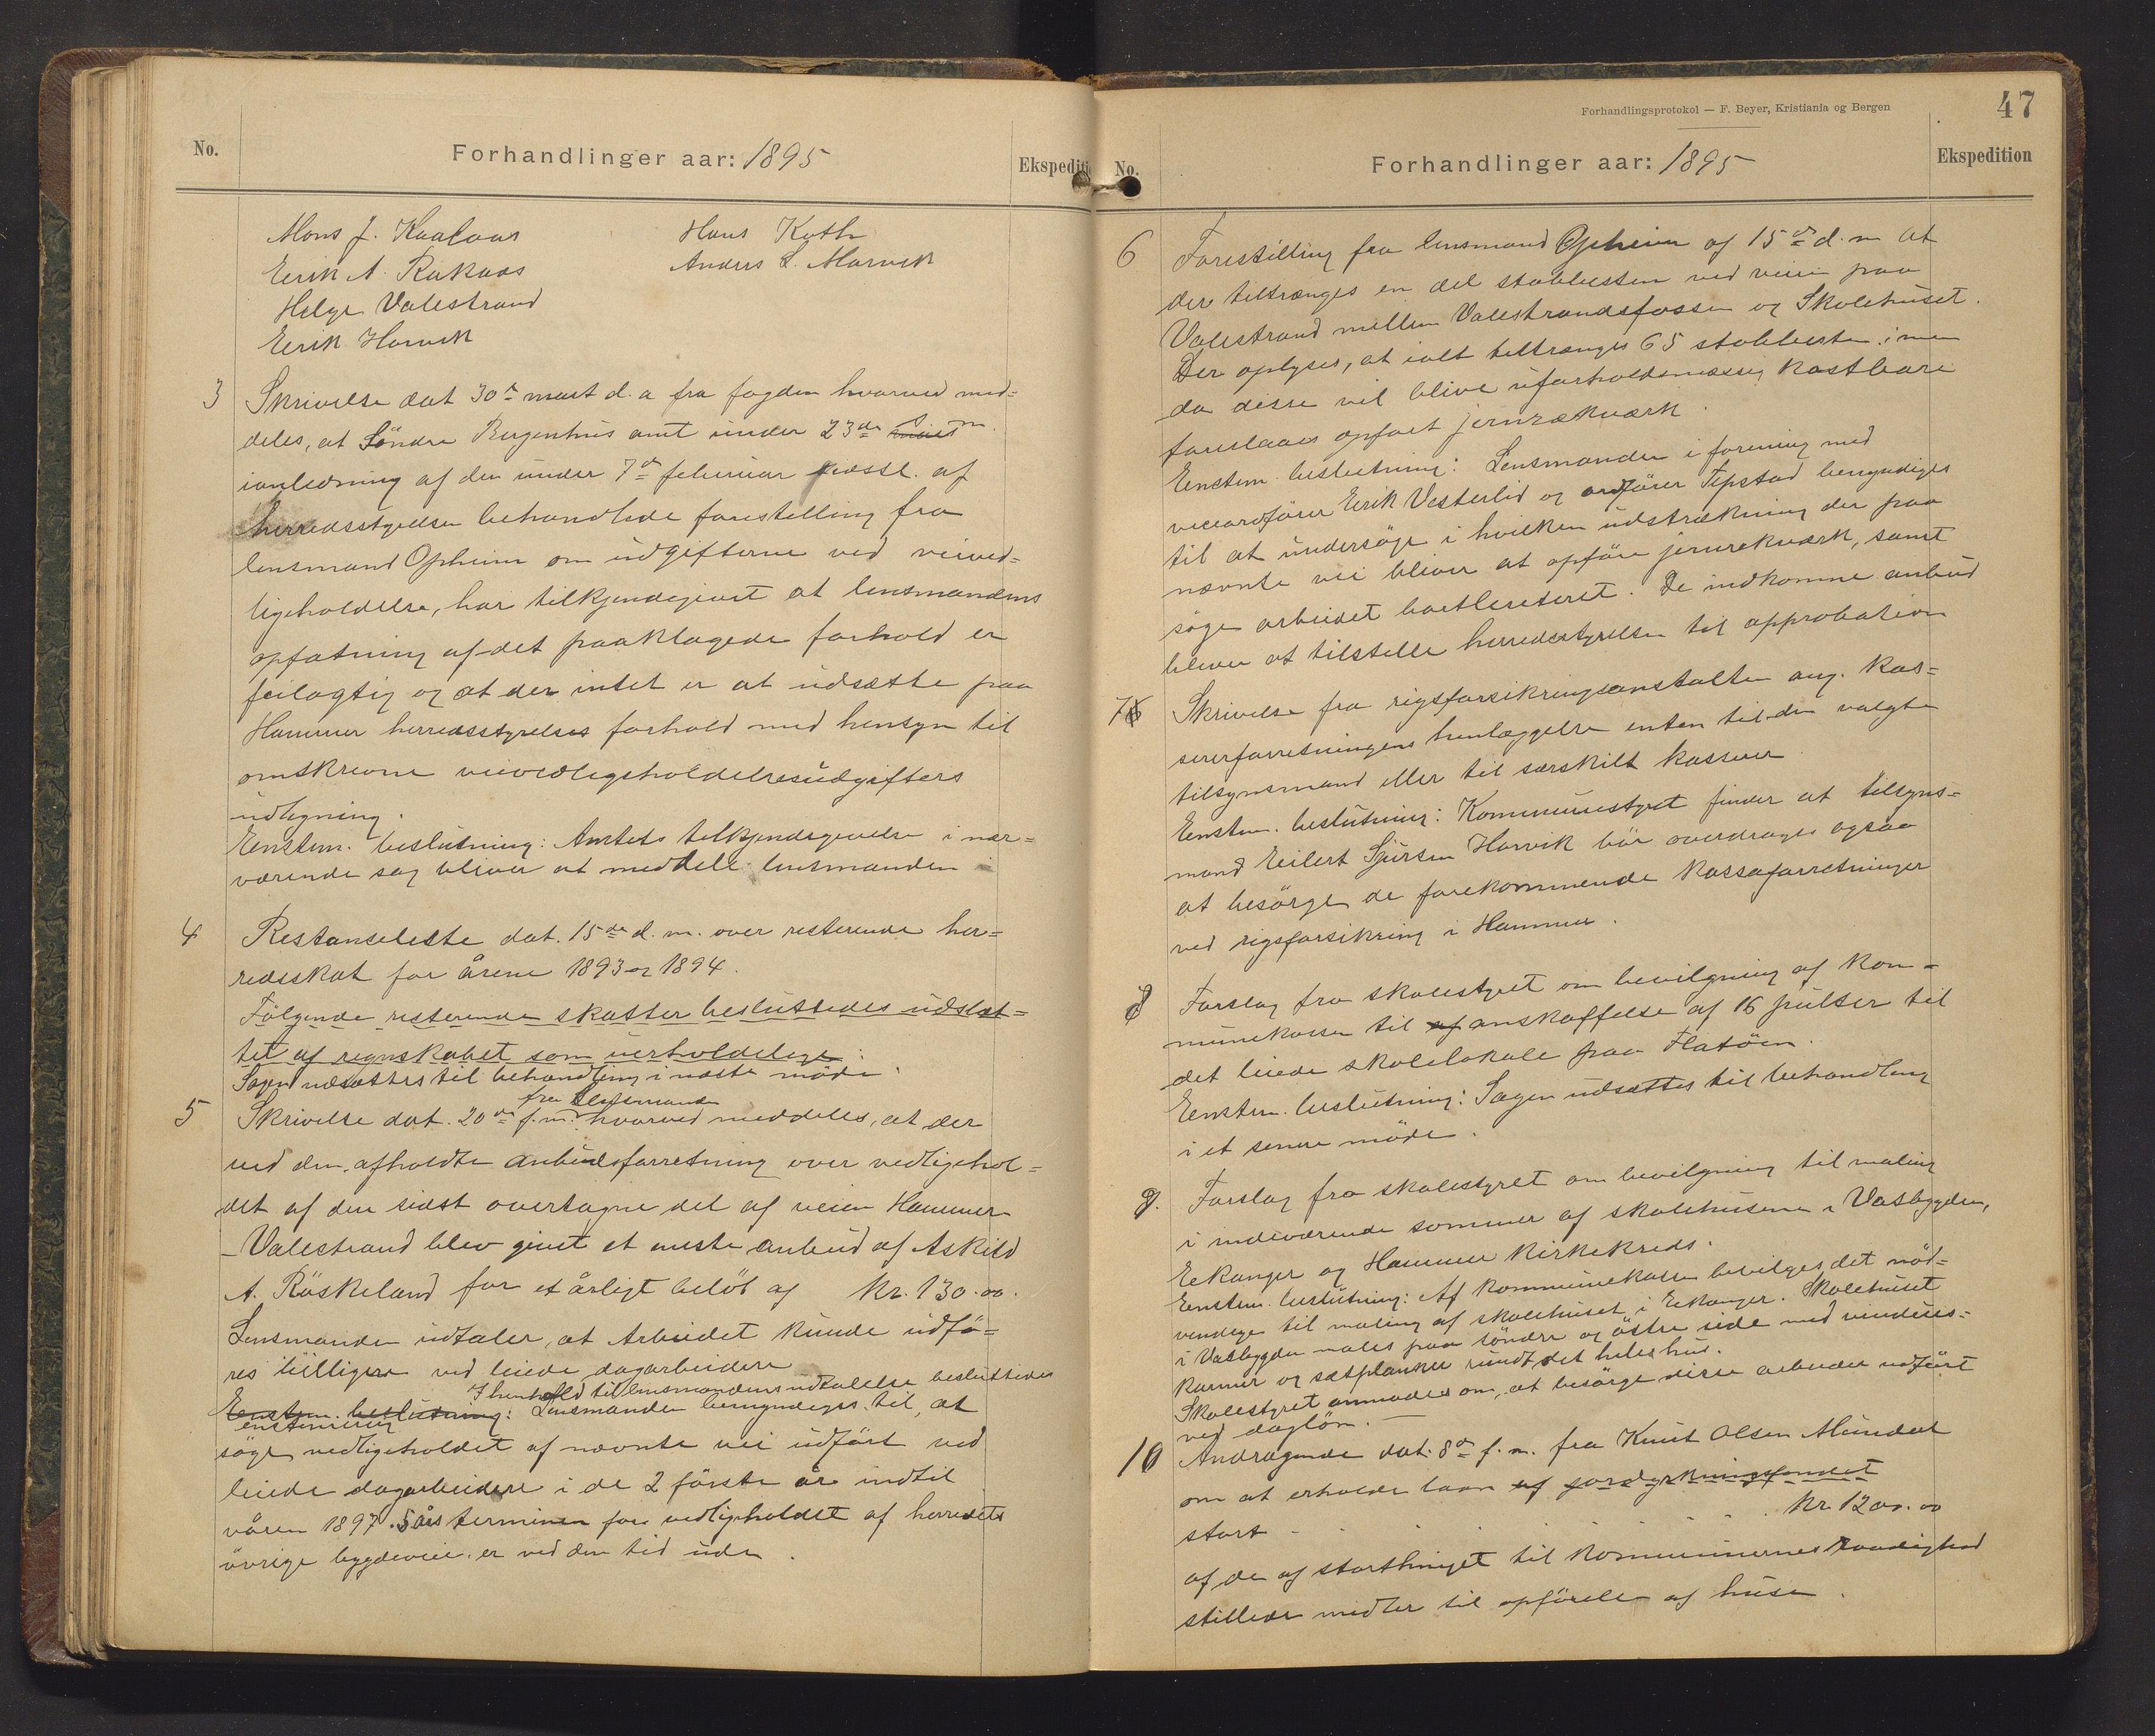 No.
Forhandlinger aar: 1895
Ekspediti
Mons J. Kaalaas
Hans Kath
Eirik A. Rakaas
Anders L. Marvik
Helge Valestrand
Eirik Horvik
3
Skrivelse dat 30te mart d. a fra fogden hvorved med=
deles, at Söndre Bergenhus amt under 23de s. m.
ianledning af den under 7de februar sidstl. af
herredsstyrelsen behandlede forestilling fra
lensmand Opheim om udgifterne ved veived=
ligeholdelse, har tilkjendegivet at lensmandens
opfatning af det paaklagede forhold er
feilagtig og at der intet er at udsætte paa
Hammer herredsstyrelses forhold med hensyn til
omskrevne veivedligeholdelsesudgifters
udligning.
Eenstem. beslutning: Amtets tilkjendegivelse i nær=
værende sag bliver at meddele lensmanden
4
Restanseliste dat. 15de d. m. over resterende her=
redsskat for årene 1893 og 1894.
Fölgende resterende skatter besluttedes udslet=
tet af regnskabet som uerholdelige:
Sagen udsættes til behandling i næste möde.
fra lensmanden
5
Skrivelse dat. 20de f. m. hvorved meddeles, at der
ved den afholdte anbudsforretning over vedligehol=
det af den sidst overtagne del af veien Hammer
-Valestrand blev givet et meste anbud af Askild
A. Röskeland for et årligt belöb af kr. 130.00.
Lensmanden udtaler, at Arbeidet kunde udfö=
res billigere ved leiede dagarbeidere
I henhold til lensmandens udtalelse besluttedes
Eenstem. beslutning: Lensmanden bemyndiges til, at
enstemmig
söge vedligeholdet af nævnte vei udfört ved
leiede dagarbeidere i de 2 förste år indtil
våren 1897. 5 års terminen for vedligeholdet af herredets
övrige bygdeveie er ved den tid ude.
Forhandlingsprotokol — F. Beyer, Kristiania og Bergen
47
No.
Forhandlinger aar: 1895
Ekspedition
6
Forestilling fra lensmand Opheim af 15de d. m at
der tiltrænges en del stabbesten ved veien paa
Valestrand mellem Valestrandsfossen og Skolehuset.
Der oplyses, at ialt tiltrænges 65 stabbesten; men
da disse vil blive uforholdsmæssig kostbare
foreslaaes opfört jernrækværk.
Eenstem. beslutning: Lensmanden i forening med
viceordförer Eirik Vesterlid og ordförer Tepstad bemyndiges
til at undersöge i hvilken udstrækning der paa
nævnte vei bliver at opföre jernrekværk, samt
söge arbeidet bortliciteret. De indkomne anbud
bliver at tilstille herredsstyrelsen til approbation
7
Skrivelse fra rigsforsikringsanstalten ang. kas=
sererforretningens henlæggelse enten til den valgte
tilsynsmand eller til særskilt kasserer
Eenstem. beslutning: Kommunestyret finder at tilsyns=
mand Eilert Sjursen Horvik bör overdrages ogsaa
at besörge de forekommende kassaforretninger
ved rigsforsikring i Hammer.
8
Forslag fra skolestyret om bevilgning af kom=
munekassen til af anskaffelse af 16 pulter til
det leiede skolelokale paa Flatöen.
Eenstem. beslutning: Sagen udsættes til behandling
i et senere möde.
9.
Forslag fra skolestyret om bevilgning til maling
i indeværende sommer af skolehusene i Vasbygden,
Eekanger og Hammer kirkekreds.
Eenstem. beslutning: Af kommunekassen bevilges det nöd=
vendige til maling af skolehuset i Eekanger. Skolehuset
i Vasbygden males paa söndre og östre side med vindues=
karmer og sætplanker rundt det hele hus.
Skolestyret anmodes om, at besörge disse arbeider udfört
ved daglön. —
10
Andragende dat. 8de f. m. fra Knut Olsen Mundal
om at erholde laan af jordyrkningsfondet
stort . . . . . . kr. 1200.00
af de af storthinget til kommunernes raadighed
stillede midler til opförelse af huse.